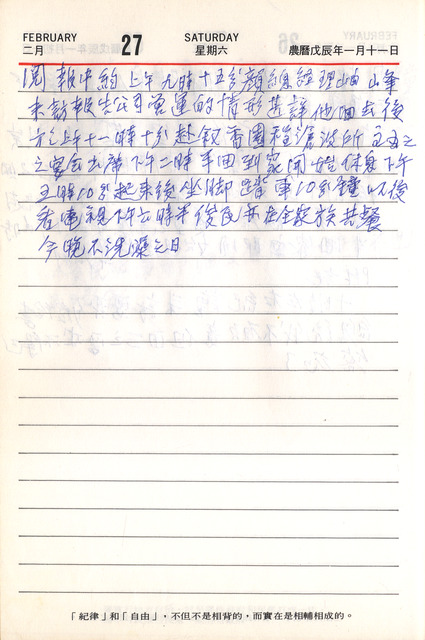 FEBRUARY 27 SATURDAY
二月 星期六 農曆戊辰年一月十一日
閱報中約上午九時十五分顏總經理岫峰
來訪報告公司營運的情形並請他回去後
於上午十一時十分赴敘香園程滄波所主
之宴會出席下午二時半回到家開始休息下午
五時10分起來後坐脚踏車10分鐘以後
看電視下午六時半俊民亦在全家族共餐
今晚不洗澡之日
「紀律」和「自由」，不但不是相背的，而實在是相輔相成的。